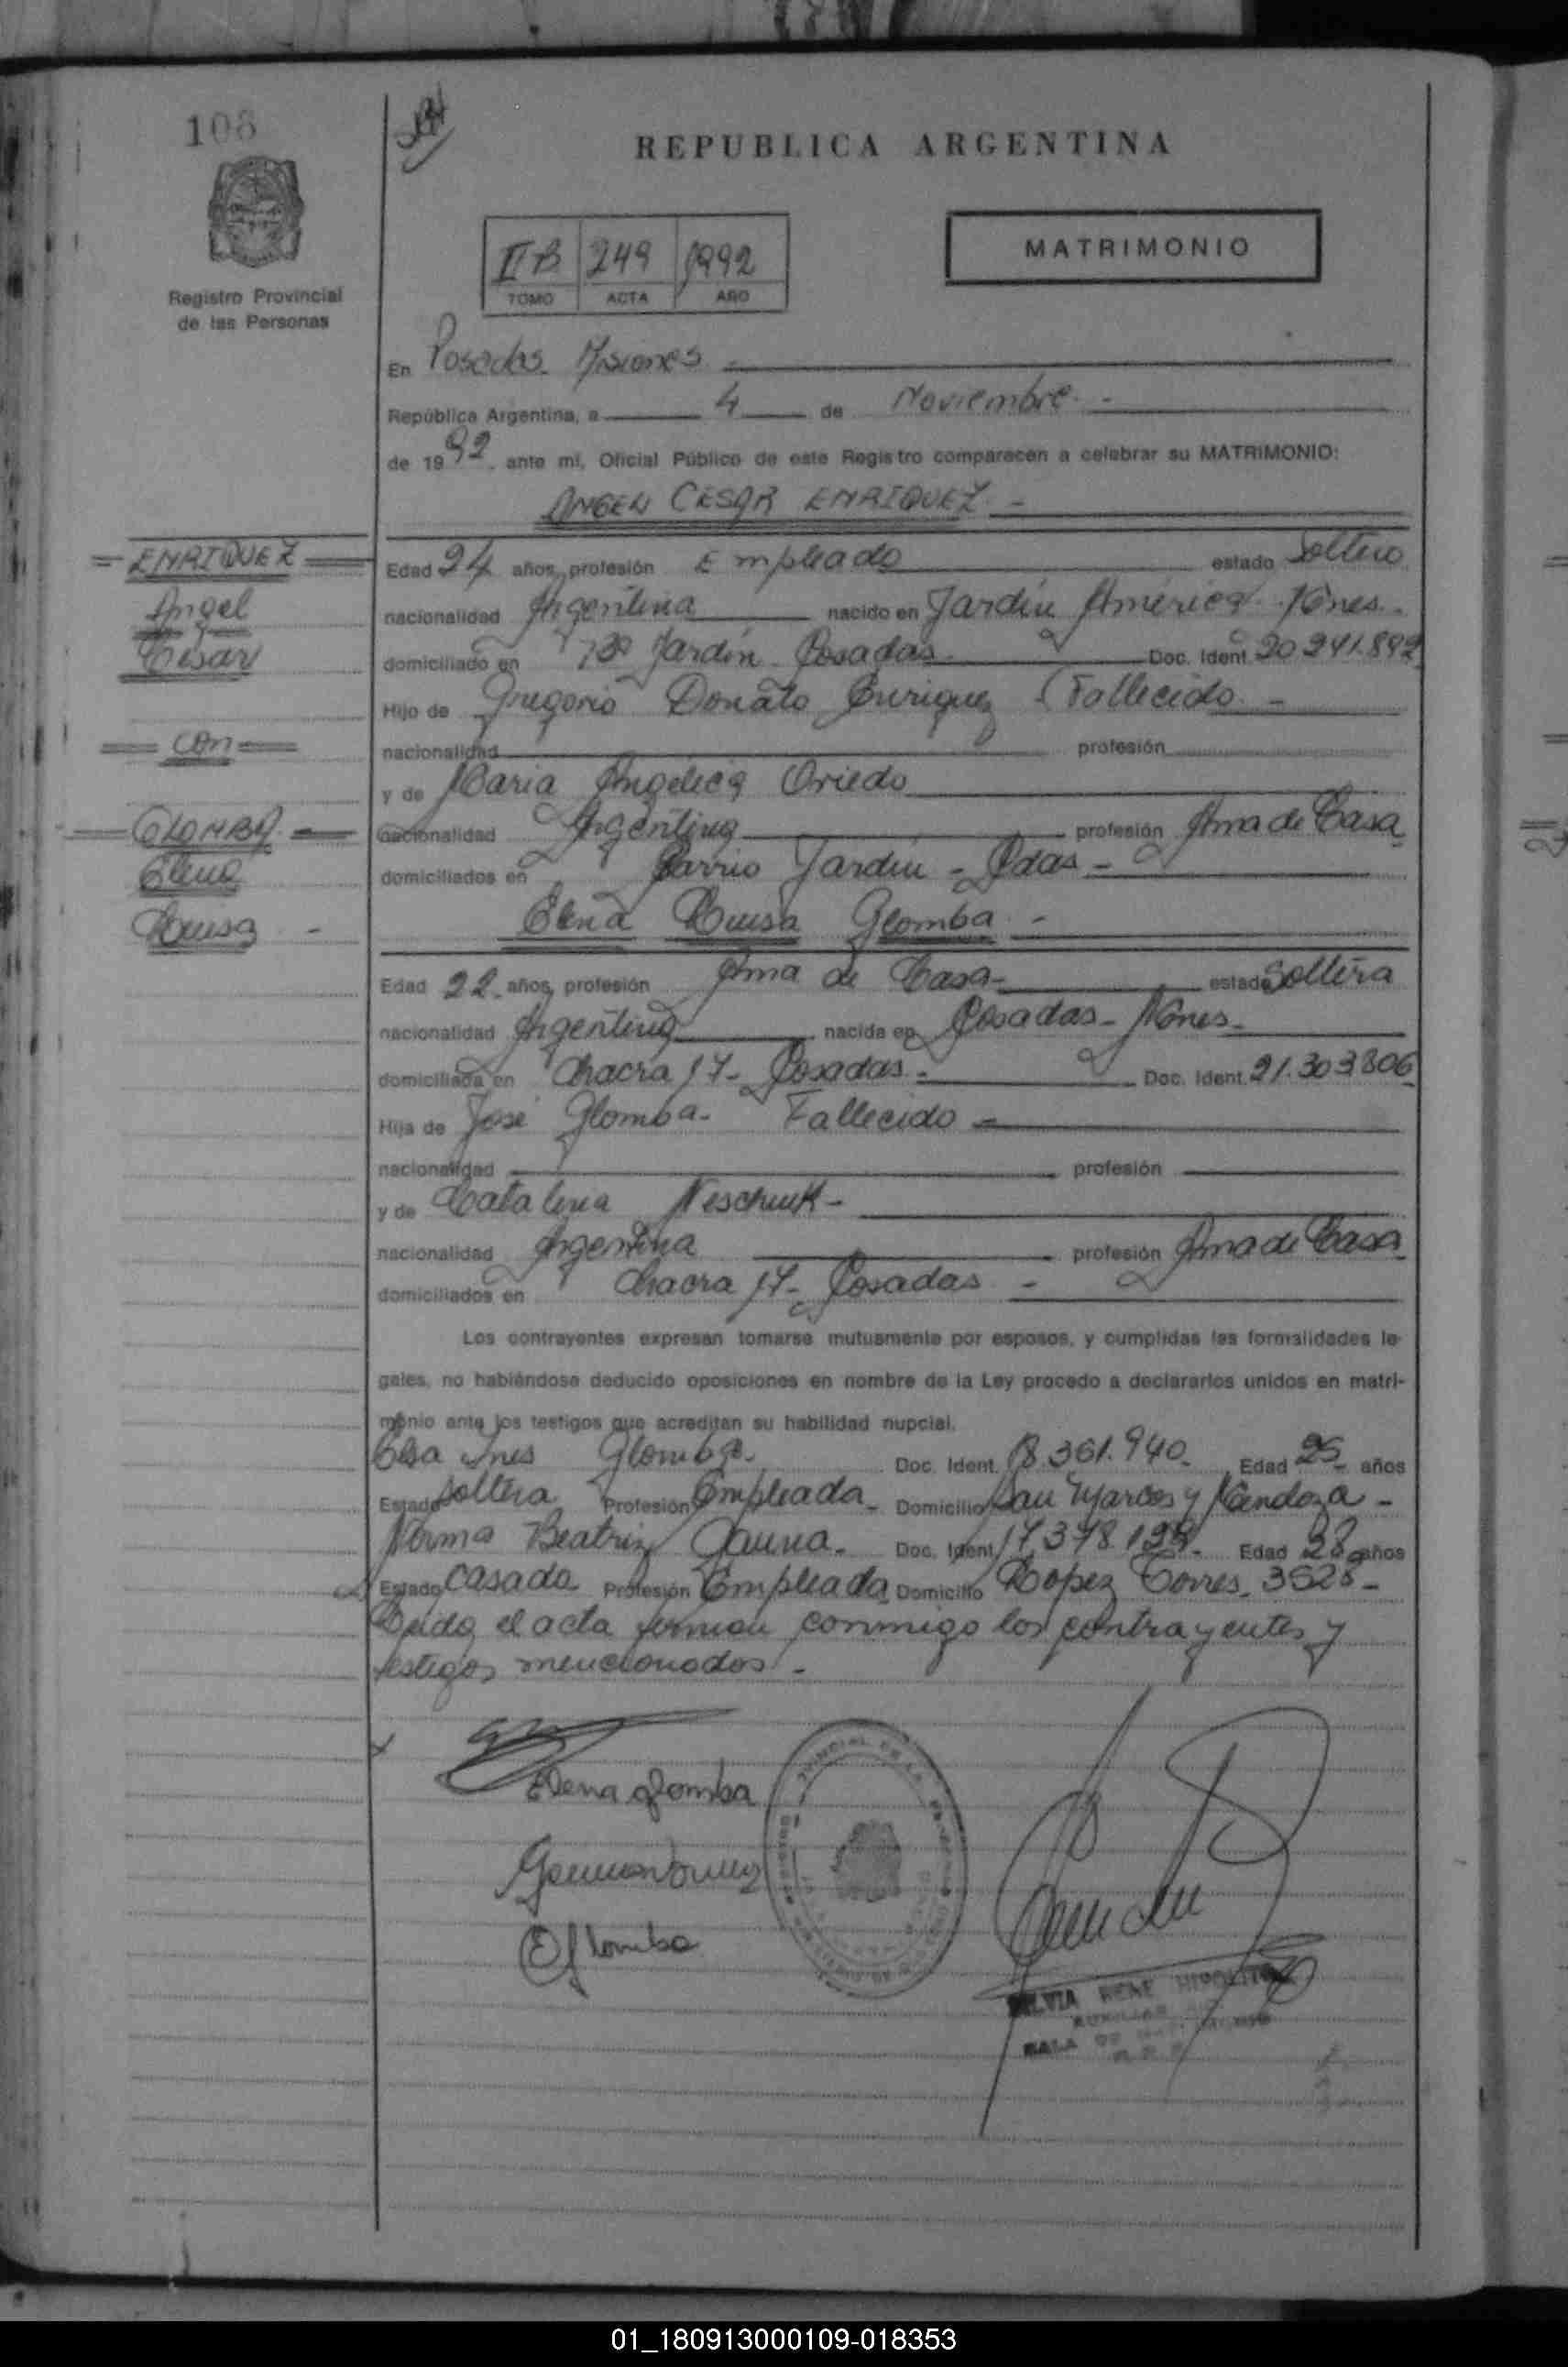 108
REPUBLICA ARGENTINA
Registro Provincial
de las Personas
II B 249 1992
TOMO ACTA AÑO
MATRIMONIO
En Posadas Misiones
República Argentina, a 4 de Noviembre
de 1992, ante mí, Oficial Público de este Registro comparecen a celebrar su MATRIMONIO:
ANGEL CESAR ENRIQUEZ
ENRIQUEZ
Angel
César
con
GLOMBA
Elena
Luisa
Edad 24 años, profesión Empleado estado Soltero
nacionalidad Argentina nacido en Jardín América Mnes.
domiciliado en Bº Jardín Posadas Doc. Ident. 20.241.892
Hijo de Gregorio Donato Enriquez (Fallecido
nacionalidad profesión
y de Maria Angelica Oviedo
nacionalidad Argentina profesión Ama de Casa
domiciliados en Barrio Jardín - Pdas -
Elena Luisa Glomba -
Edad 22 años, profesión Ama de Casa estado Soltera
nacionalidad Argentina nacida en Posadas - Mnes -
domiciliada en Chacra 17 - Posadas - Doc. Ident. 21.303.806
Hija de José Glomba - Fallecido
nacionalidad profesión
y de Catalina
nacionalidad Argentina profesión Ama de Casa
domiciliados en Chacra 17 - Posadas -
Los contrayentes expresan tomarse mutuamente por esposos, y cumplidas las formalidades le-
gales, no habiéndose deducido oposiciones en nombre de la Ley procedo a declararlos unidos en matri-
monio ante los testigos que acreditan su habilidad nupcial.
Elsa Ines Glomba. Doc. Ident. 18.361.940 Edad 25 años
Estado Soltera Profesión Empleada Domicilio San Marcos y Mendoza -
Norma Beatriz Gauna. Doc. Ident. Edad 28 años
Estado Casada Profesión Empleada Domicilio Lopez Torres 3528 -
Leída el acta firman conmigo los contrayentes y
testigos mencionados. -
Elena Glomba
E Glomba
SILVIA RENE HIPOLITO
AUXILIAR
SALA DE
01_180913000109-018353